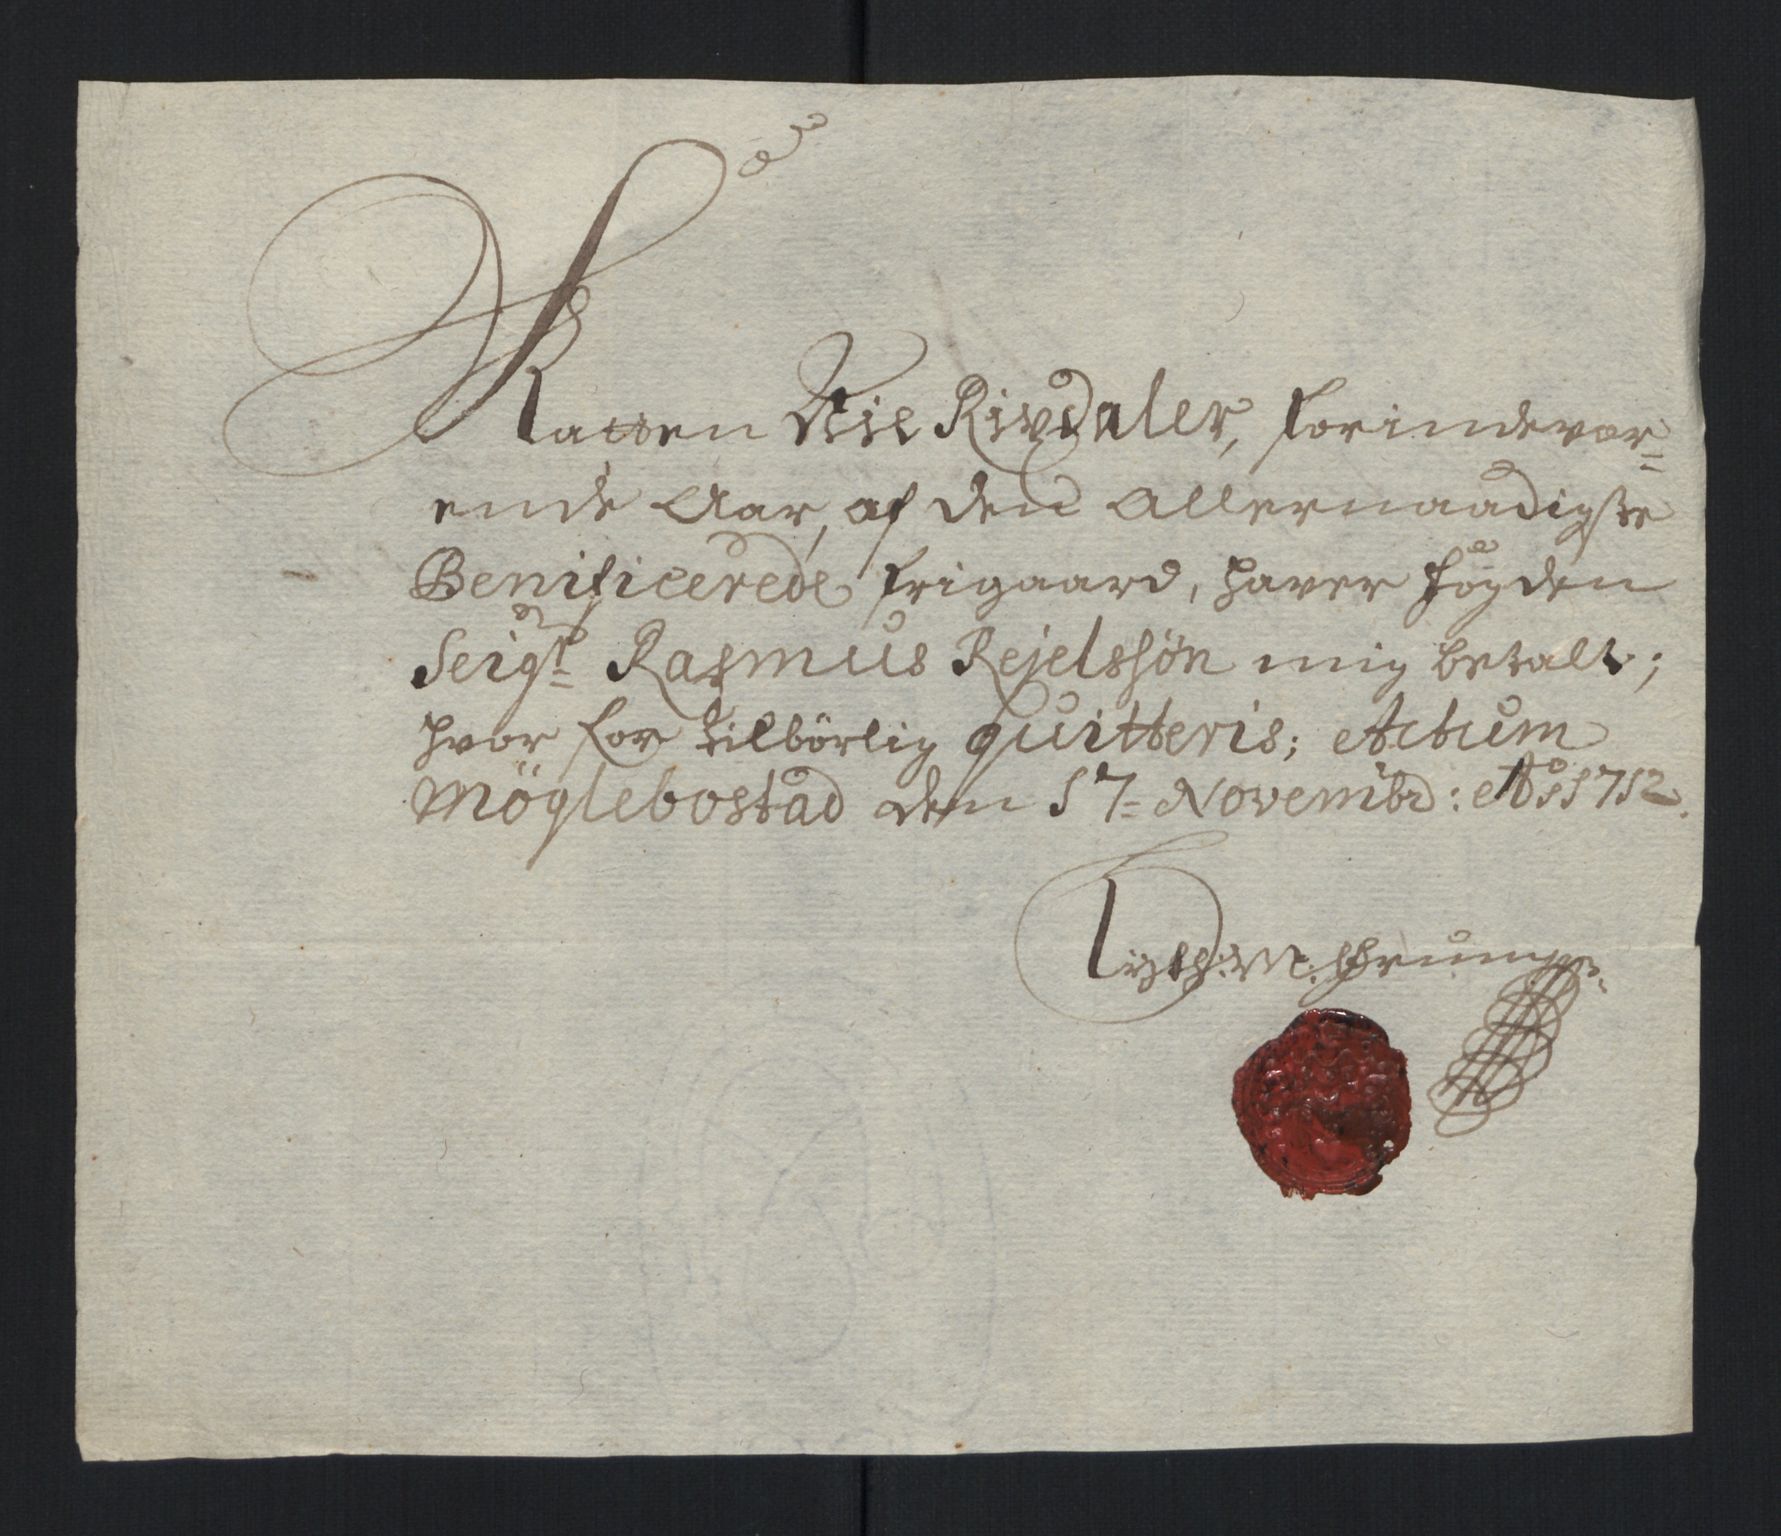 Skatten Ni Rixdaler, for indevær=
ende Aar, af den Allernaadigste
Benificerede frigaard, haver fögden
Seigr Rasmus Kejelssön mig betalt;
hvor for tilbörlig quitteris; Actum
Möglebostad den 17= Novembr: Ao 1712.